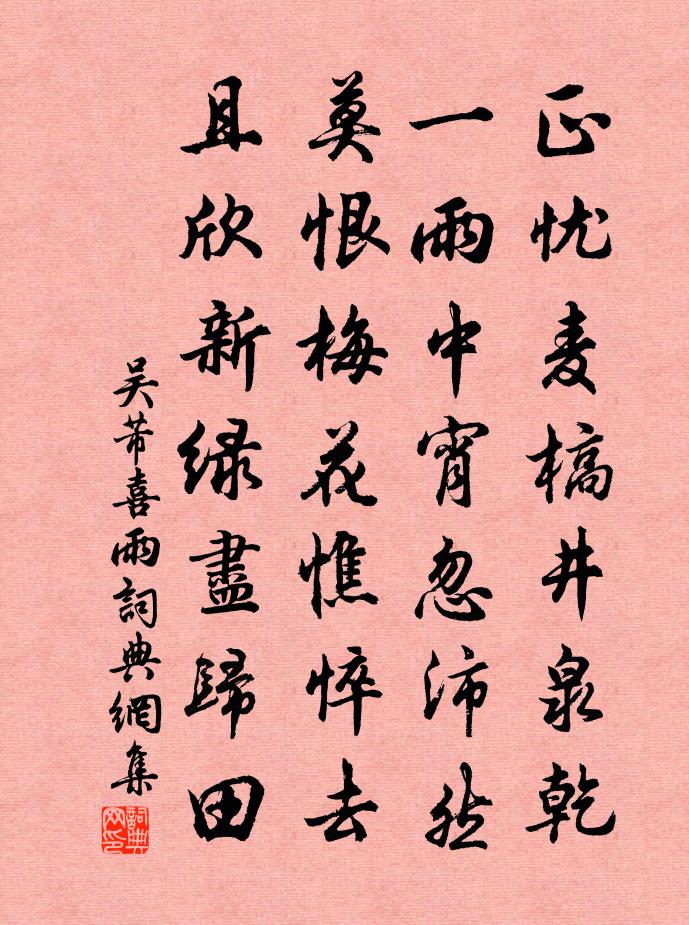 正忧麦槁井泉乾
一雨中宵忽沛然
莫恨梅花憔悴去
且欣新绿盡歸田
吴芾喜雨詞典網集
詞典网印